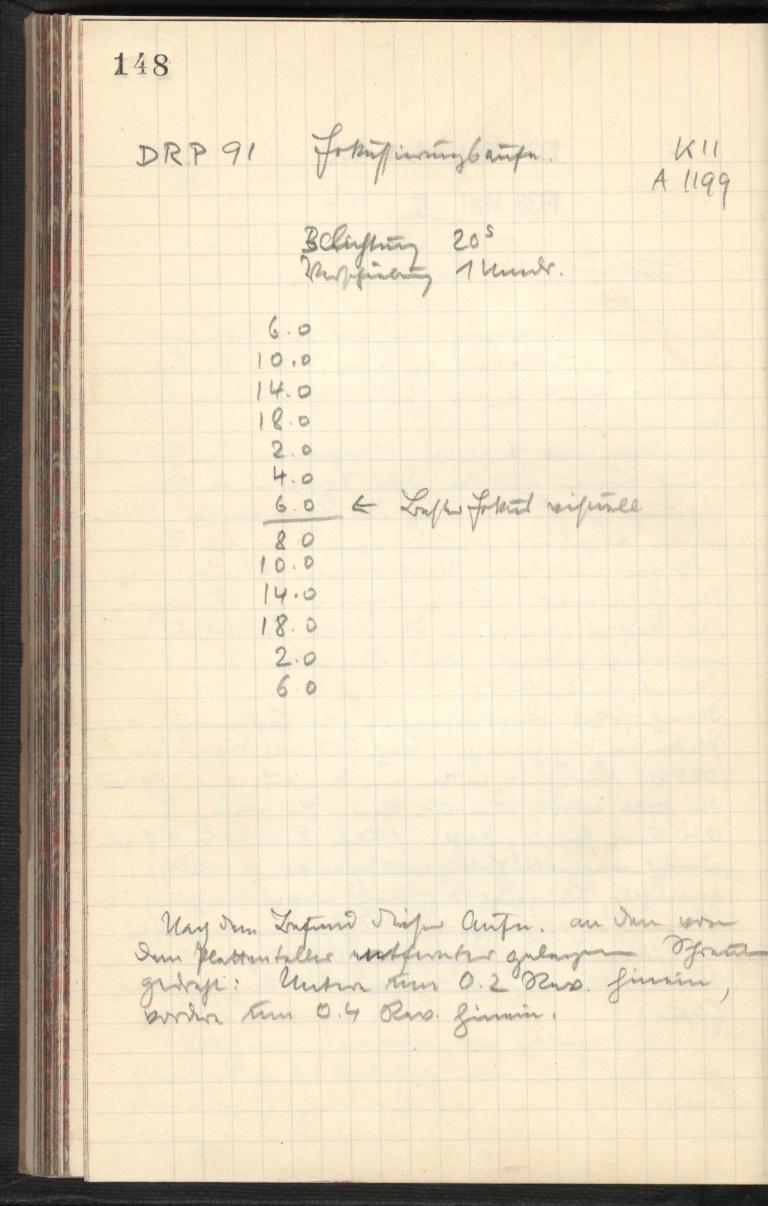 148
DRP 91 Fokussierungsaufn. K 11
A 1199
Belichtung 20s
Verschiebung 1 Umdr.
6.0
10.0
14.0
18.0
2.0
4.0
6.0 ← Bester Fokus visuell
8 0
10.0
14.0
18.0
2.0
6 0
Nach dem Befund dieser Aufn. an den von
dem Plattenteller entfernter gelegenen
gedreht: Untere um 0.2 Rev. hinein,
vordere um 0.4 Rev. hinein.